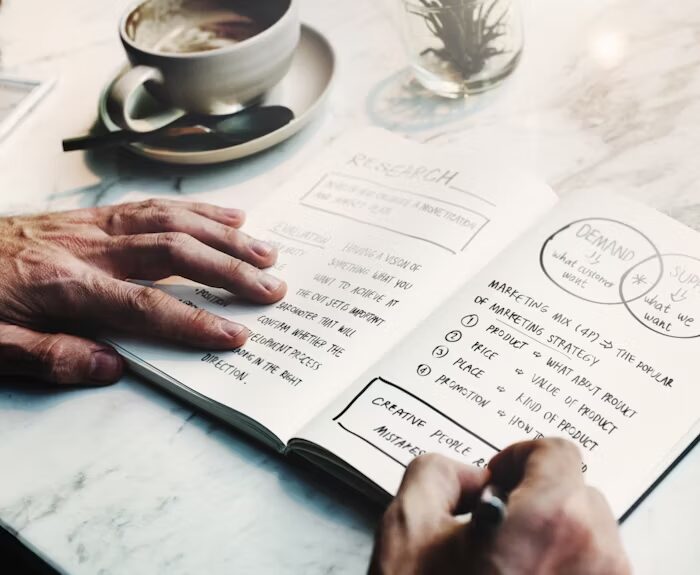 RESEARCH
DEVELOP AND ENSURE A MONETIZATION
AND MARKET PLAN
EVALUATION HAVING A VISION OF
SOMETHING WHAT YOU
WANT TO ACHIEVE AT
THE OUTSET IS IMPORTANT
BAROMETER THAT WILL
CONFIRM WHETHER THE
DEVELOPMENT PROCESS
IN THE RIGHT
DIRECTION.
DEMAND
what customer
want
what we
want
MARKETING MIX (4P) ⇒ THE POPULAR
OF MARKETING STRATEGY
① PRODUCT ⇒ WHAT ABOUT PRODUCT
② PRICE ⇒ VALUE OF PRODUCT
③ PLACE ⇒ KIND OF PRODUCT
④ PROMOTION ⇒ HOW TO
CREATIVE PEOPLE
MISTAKES